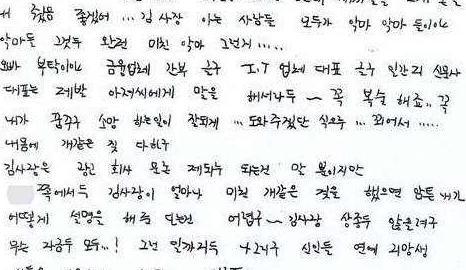 줬음 좋겠어 ... 김 사장 아는 사람들 모두가 악마 악마 들이야
악마들 그것두 완전 미친 악마 그런거 .....
오빠 부탁이야 금융업체 간부 하구 I.T 업체 대표 하구 일간지 신문사
대표는 제발 아저씨에게 말을 해서라두 ~ 꼭 복수 해죠.. 꼭
내가 꿈꾸구 소망 하는일이 잘되게 ... 도와주겠단 식으루 ... 꼬여서 .....
내몸에 개같은 짓 다하구
김사장은 광고 회사 모든 제의두 되는건 만 볼이지만
쪽에서두 김사장이 얼마나 미친 개같은 것을 했으면 암튼 내가
어떻게 설명을 해 주 되는건 어렵구 ~ 김사장 상종두 않을려구
무든 자금두 모두...! 그런 일까지두 나그리구 신인들 연예 지망생